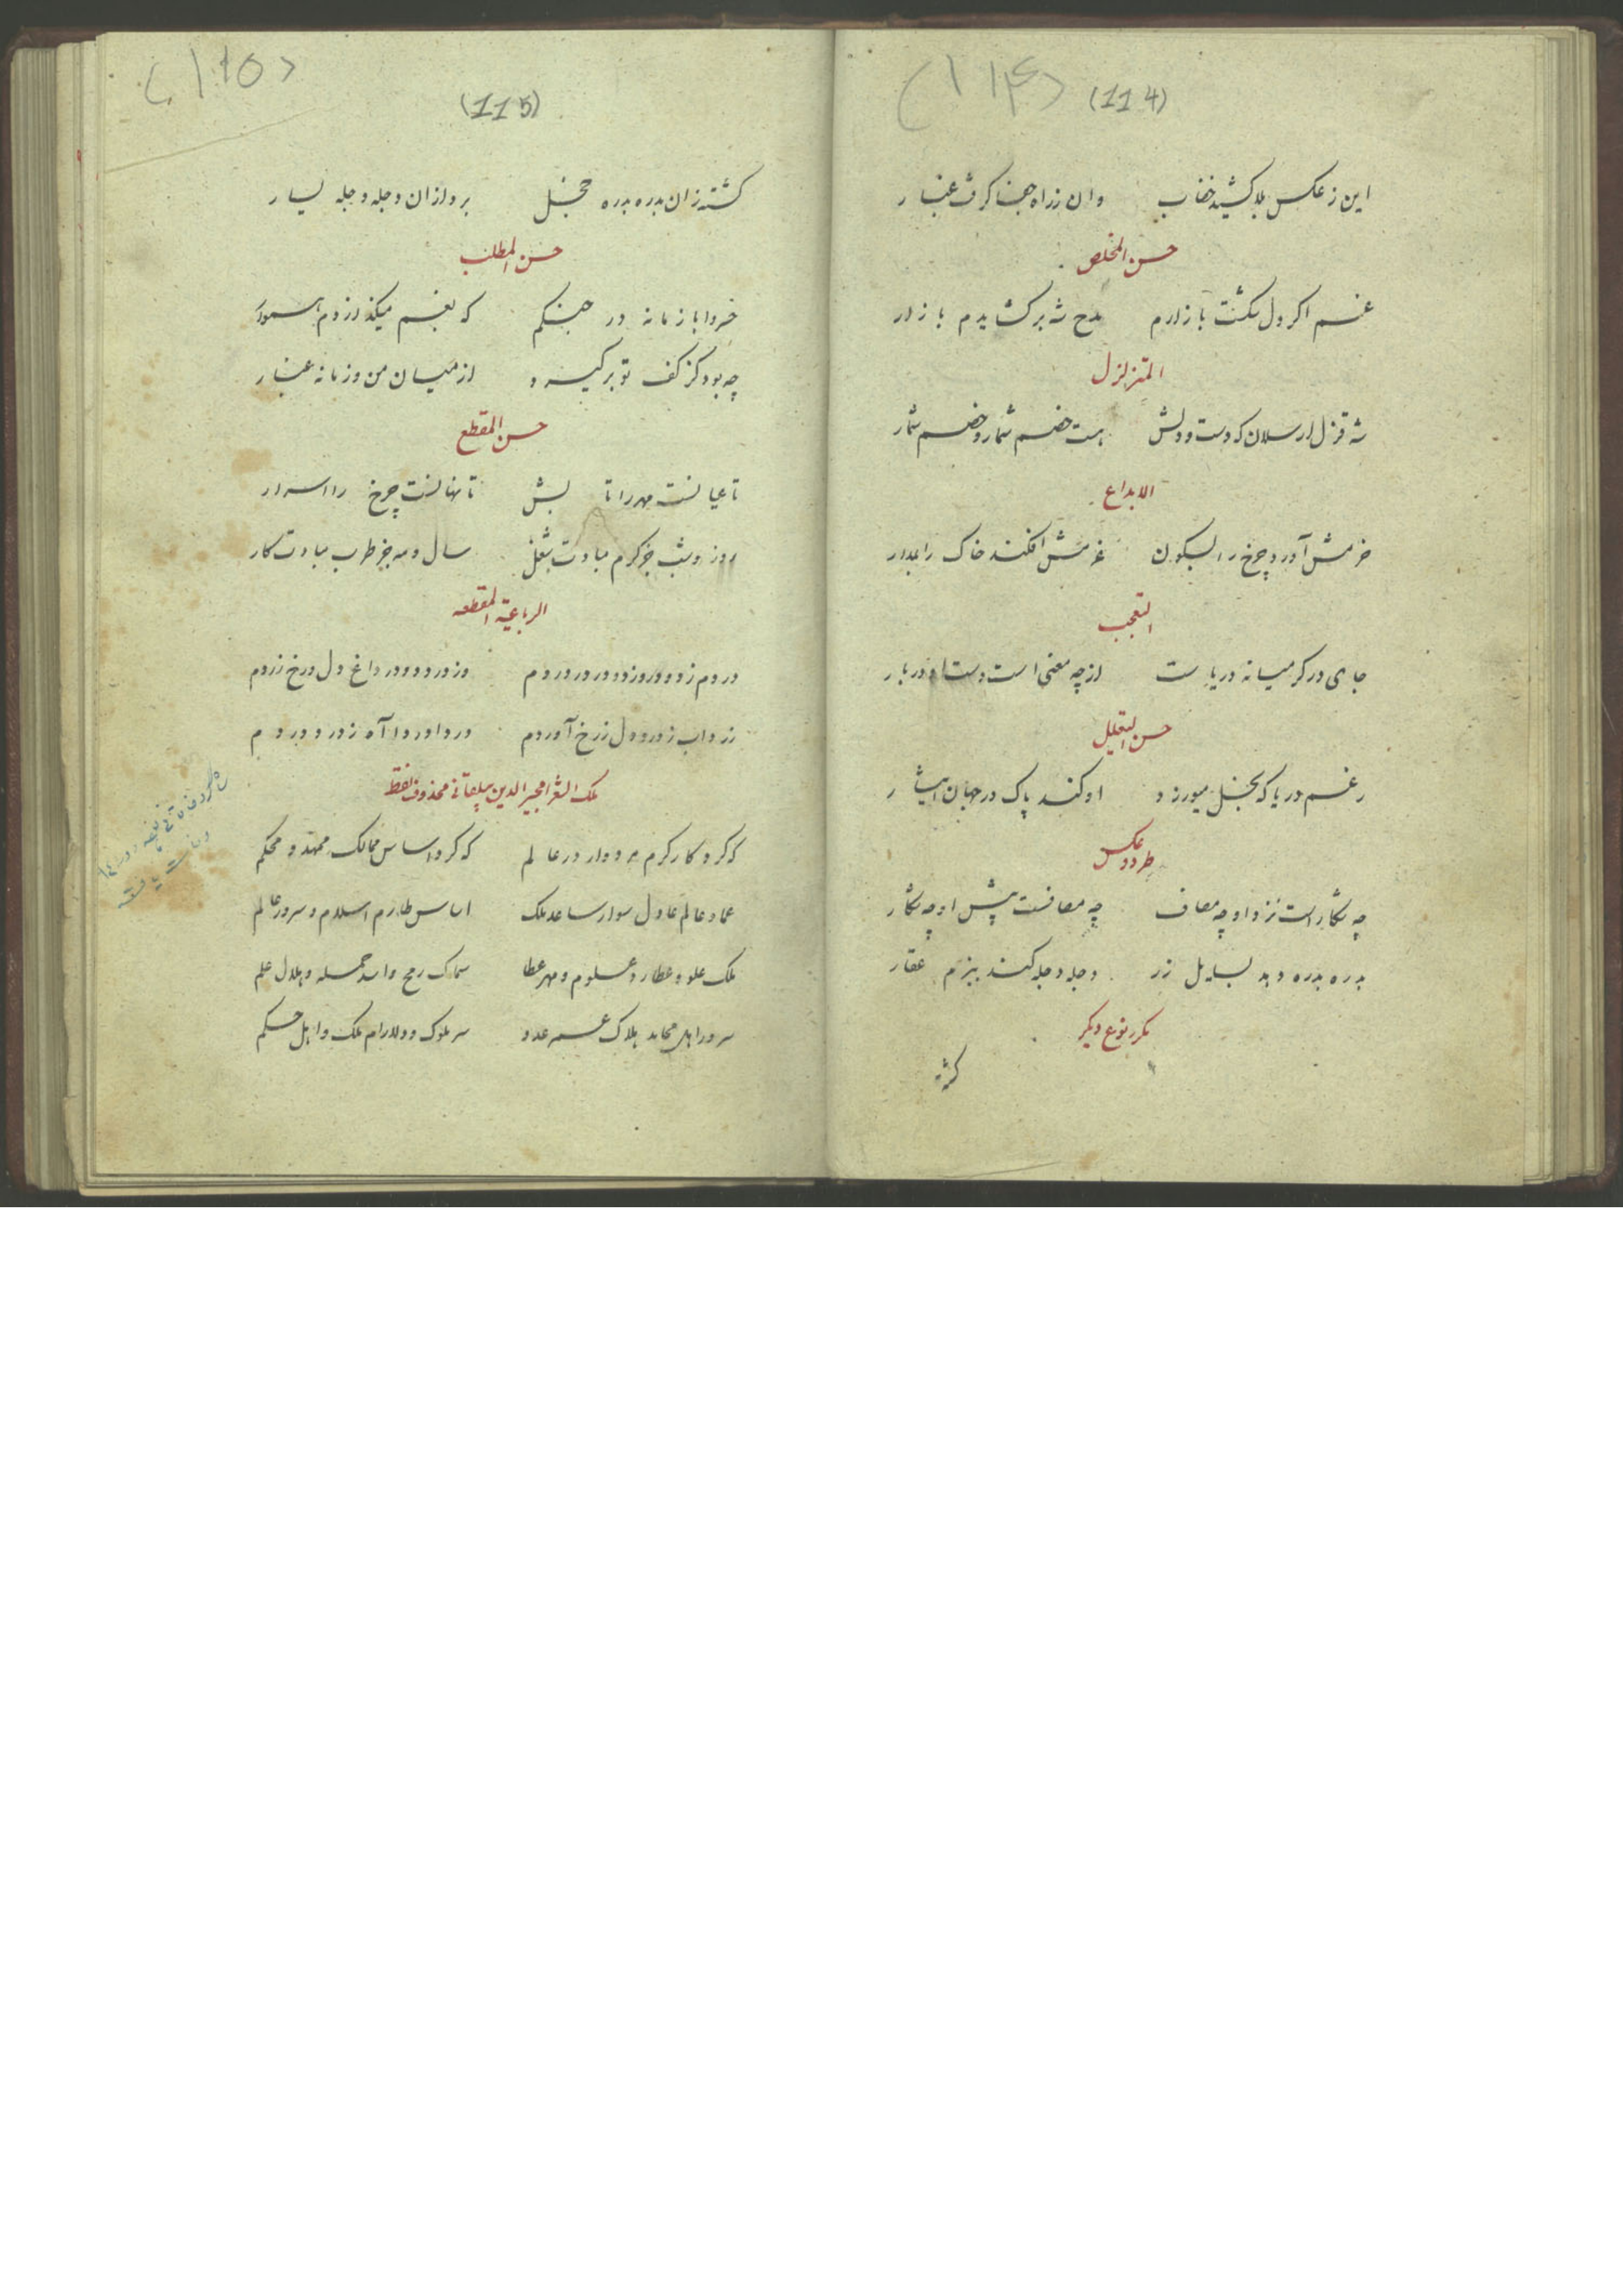 (۱۱۴) (114)
این ز عکس بلا کشید خضاب وان ز راه جفا گرفت غبار
حسن المخلص
غم اگر دل شکست بازارم مدح شه برکشایدم بازار
المتزلزل
شه قزل ارسلان که دست و دلش هست خصم شمار و خصم شمار
الابداع
حزمش آورد چرخ را بسکون عزمش افکند خاک را بمدار
التعجب
جای در گرمیانه دریا است از چه معنی است دست او دربار
حسن التعلیل
رغم دریا که بخل میورزد او کند پاک در جهان ایثار
طرد و عکس
چه شکار است نزد او چه مصاف چه مصافست پیش او چه شکار
بدره بدره دهد بسایل زر دجله دجله کند ببزم عقار
مکرر نوع دیگر
کشته
(۱۱۵) (115)
کشته زان بدره بدره بدره خجل بر و ازان دجله دجله بسیار
حسن المطلب
خسروا با زمانه در جنگم که بغم میگذاردم هموار
چه بود کز کف تو برگیرد از میان من و زمانه غبار
حسن المقطع
تا عیانست مهر را تابش تا نهانست چرخ را اسرار
روز و شب جز کرم مبادت شغل سال و مه جز طرب مبادت کار
الرباعیة المقطعه
وز درد و دود داغ دل درخ زردم
زرداب ز درد دل ز رخ آوردم دردا و دردا آه ز درد و دردم
ملک الشعرا مجیر الدین بیلقانی محذوف نقط
که کرد کار کرم مردوار در عالم که کرد اساس ممالک ممهد و محکم
عماد عالم عادل سوار ساعد ملک اساس طارم اسلام و سرور عالم
ملک علو و عطارد علوم و مهر عطا سماک رمح و اسد حمله و هلال علم
سرور اهل محامد هلاک عمر عدو سر ملوک و دلارام ملک و اهل حکم